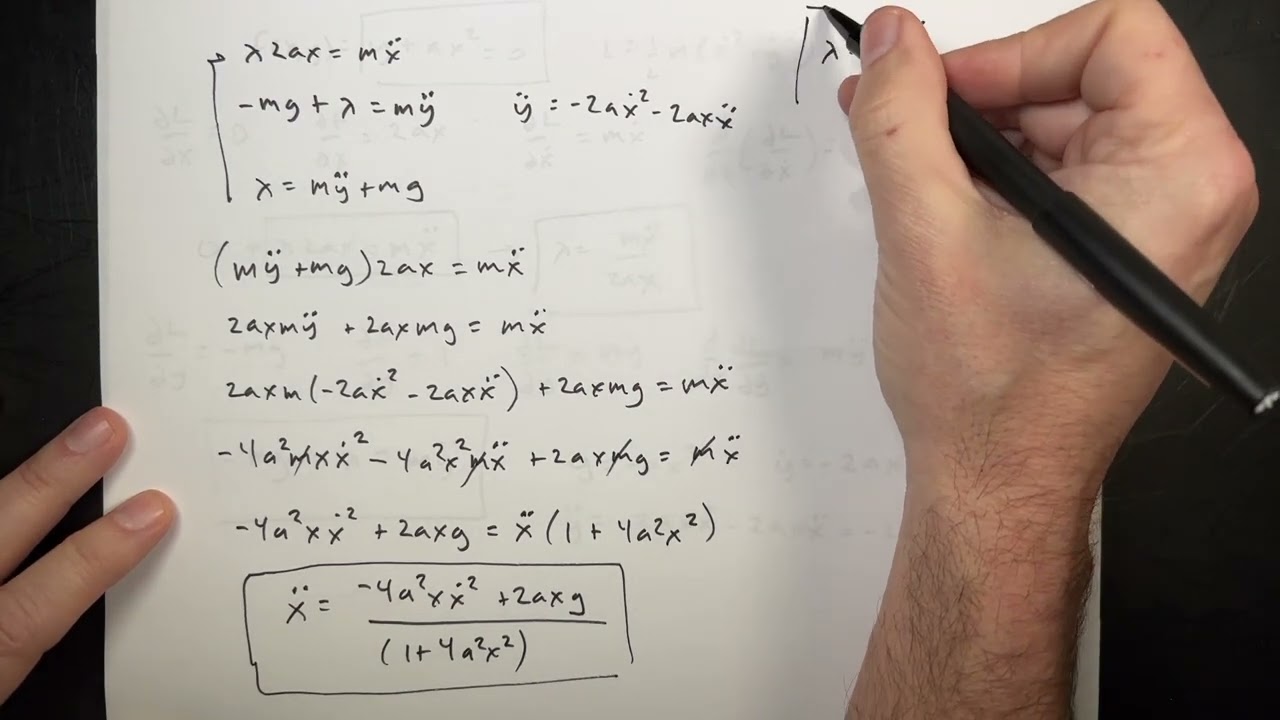 λ2ax = mẍ
-mg + λ = mÿ ÿ = -2aẋ² - 2axẍ
λ = mÿ + mg
(mÿ + mg)2ax = mẍ
2axmÿ + 2axmg = mẍ
2axm(-2aẋ² - 2axẍ) + 2axmg = mẍ
-4a²mxẋ² - 4a²x²mẍ + 2axmg = mẍ
-4a²xẋ² + 2axg = ẍ(1 + 4a²x²)
ẍ = -4a²xẋ² + 2axg
(1 + 4a²x²)
λ